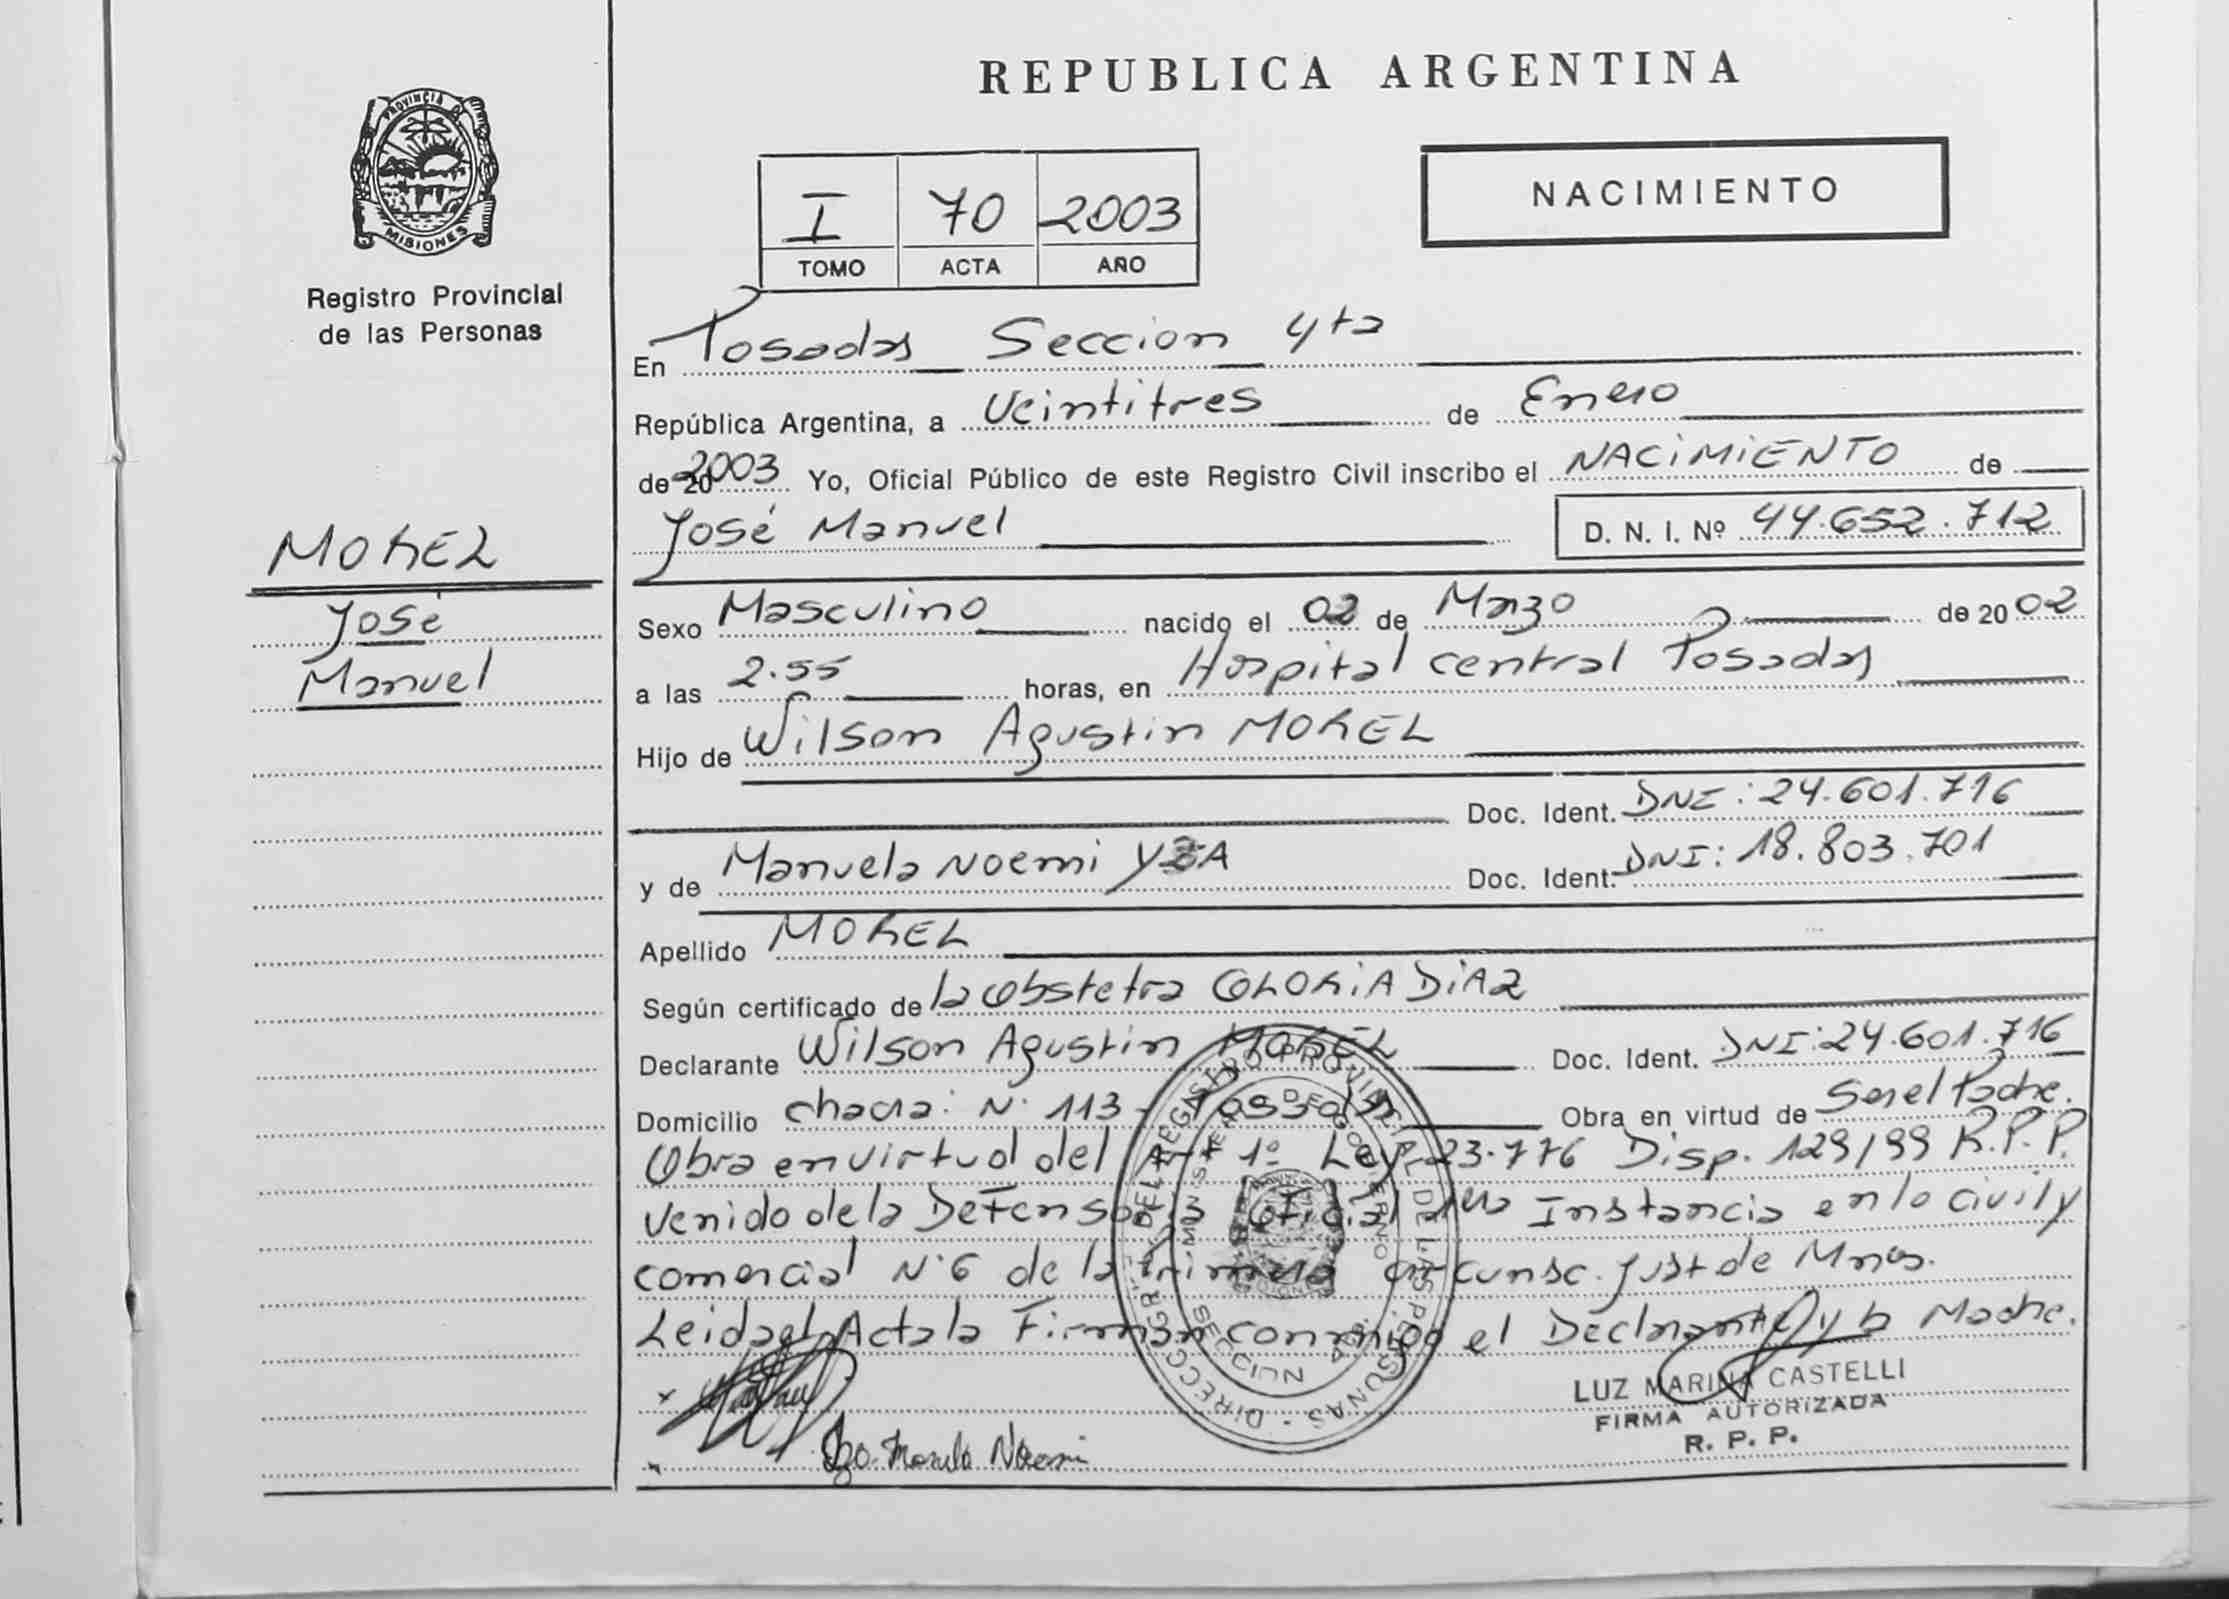 REPUBLICA ARGENTINA
PROVINCIA DE MISIONES
Registro Provincial
de las Personas
I 70 2003
TOMO ACTA AÑO
NACIMIENTO
En Posadas Seccion 4ta
República Argentina, a Veintitres de Enero
de 20 2003 Yo, Oficial Público de este Registro Civil inscribo el NACIMIENTO de
José Manuel D. N. I. Nº 44.652.712
MOREL
José
Manuel
Sexo Masculino nacido el 02 de Marzo de 2002
a las 2.55 horas, en Hospital central Posadas
Hijo de Wilson Agustin MOREL
Doc. Ident. DNI: 24.601.716
y de Manuela NOEMI Doc. Ident. DNI: 18.803.701
Apellido MOREL
Según certificado de la obstetra GLORIA DIAZ
Declarante Wilson Agustin MOREL Doc. Ident. DNI: 24.601.716
Domicilio chacra: N. 113 - Posadas Obra en virtud de Ser el Padre.
Obra en virtud del Art 1º Ley 23.776 Disp. 129/99 R.P.P.
venido de la Defensoria Oficial 1ra Instancia en lo civil y
comercial N. 6 de la Primera circunsc. Just de Mnes.
Leida el Acta la Firman conmigo el Declarante y la Madre.
LUZ MARINA CASTELLI
FIRMA AUTORIZADA
R. P. P.
Manuela Noemi
DIRECCION GRAL. DEL REGISTRO PROVINCIAL DE LAS PERSONAS
MINISTERIO DE GOBIERNO
SECCION 4ta.